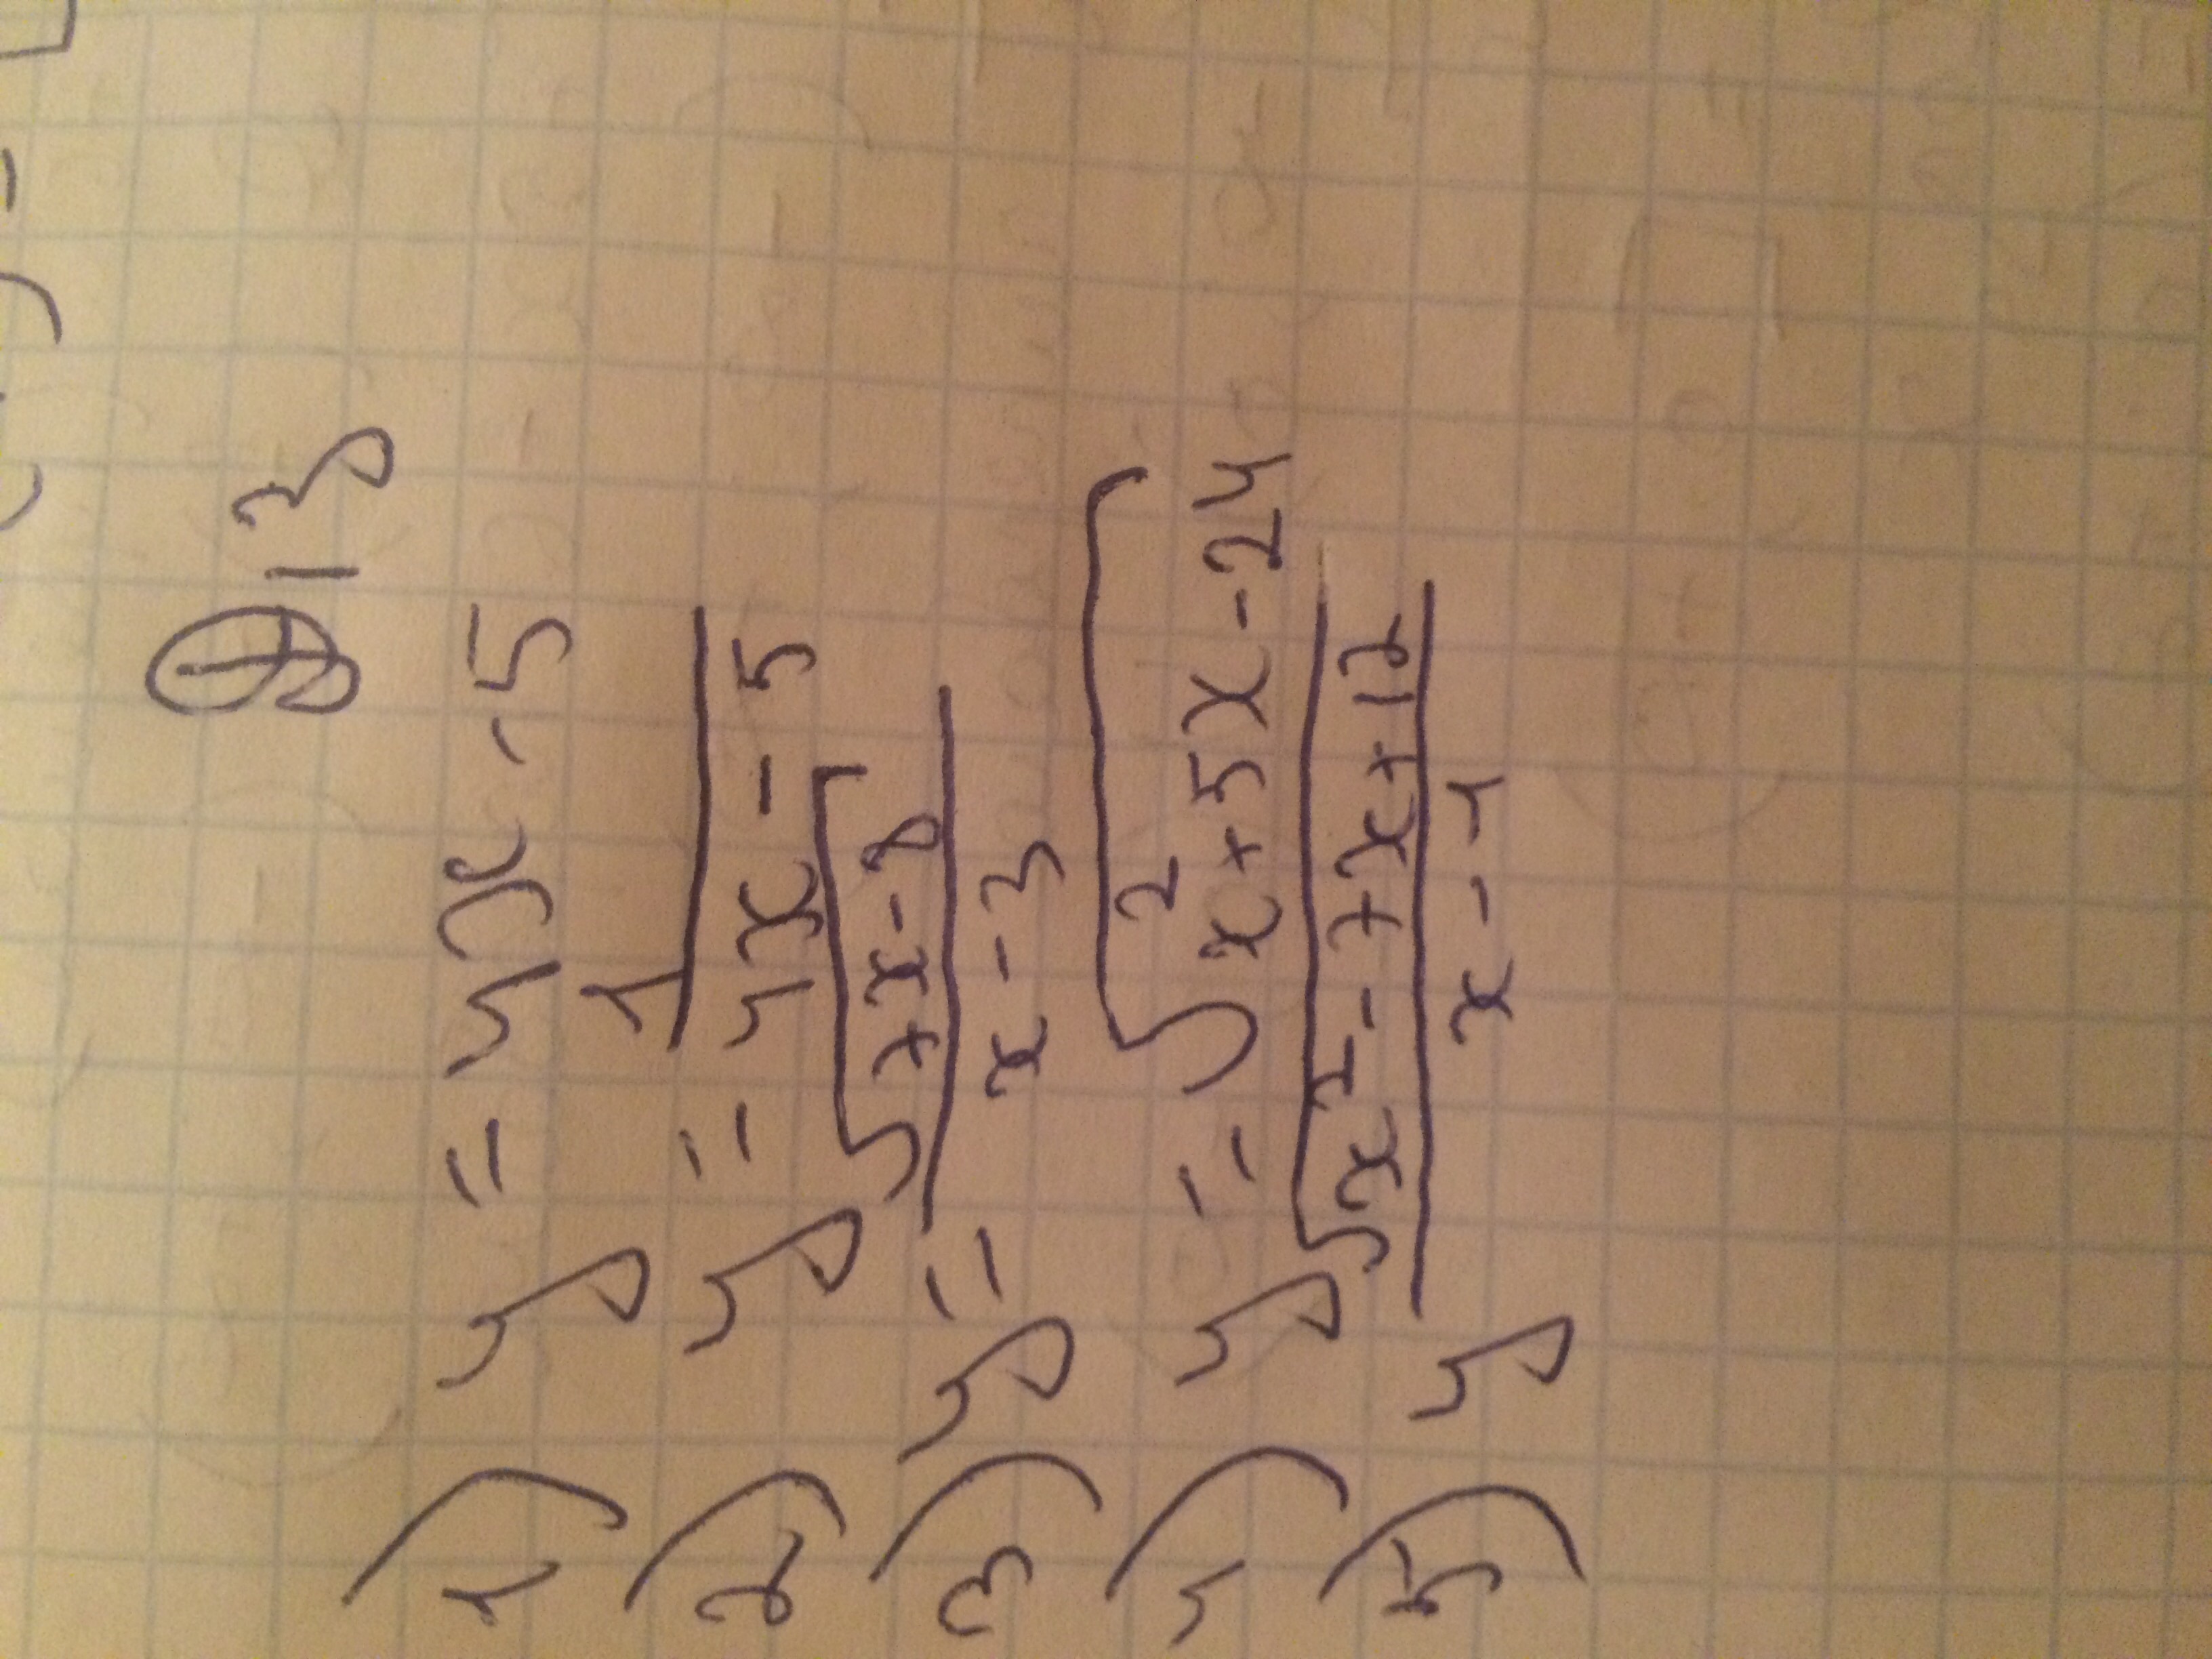 Ф/З
1) y = 4x - 5
2) y = 1/(4x - 5)
3) y = √(7x - 8)/(x - 3)
4) y = √(x² + 5x - 24)
5) y √(x² - 7x + 12)/(x - 1)